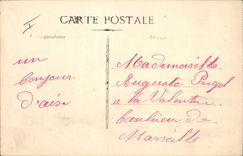 CARTE POSTALE
Correspondance
Adresse
un
bonjour
d'aix
Mademoiselle
Auguste Pujol
a la Valentine
banlieue de
Marseille